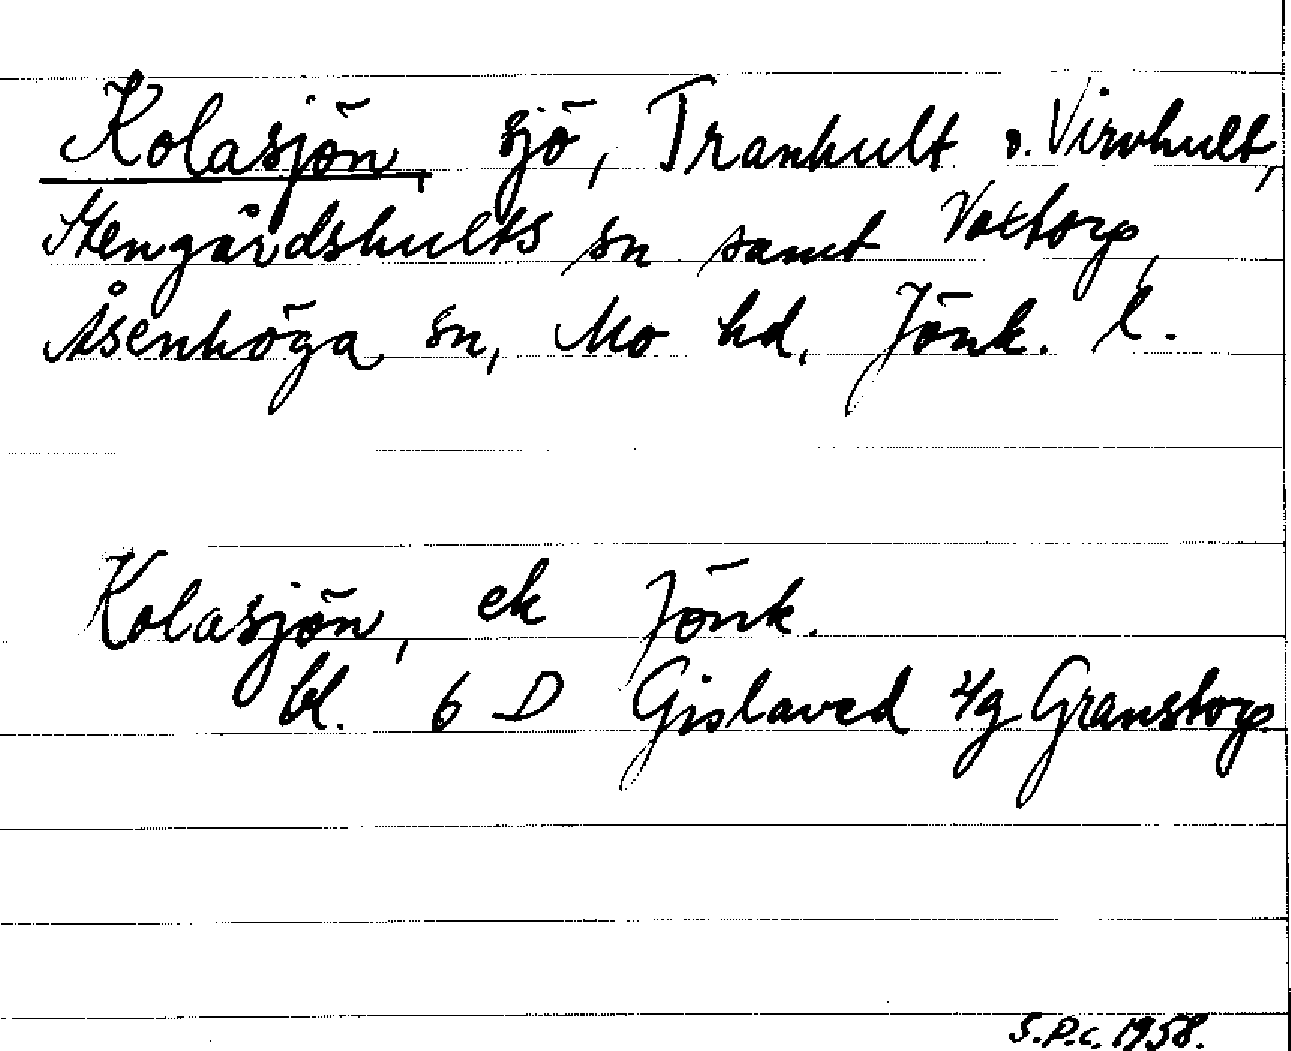 Kolasjön, sjö, Tranhult o. Virvhult,
Stengårdshults sn samt Voxtorp,
Åsenhöga sn, Mo hd, Jönk. l.
Kolasjön, ek Jönk.
bl. 6 D Gislaved 4g Granstorp
S.P.C. 1958.